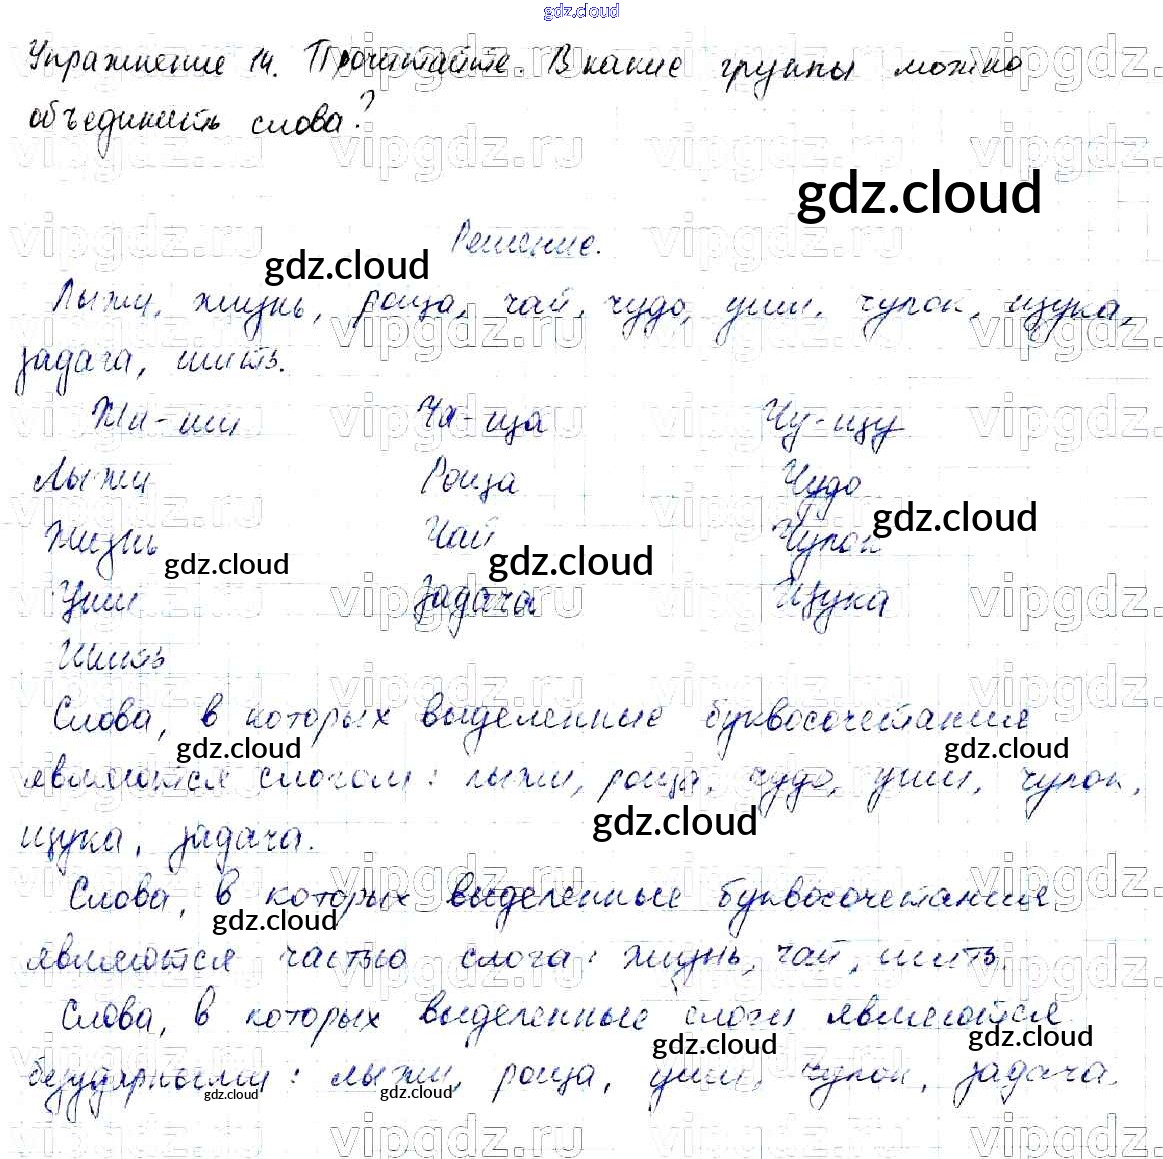 gdz.cloud
Упражнение 14. Прочитайте. В какие группы можно
объединить слова?
gdz.cloud
Решение.
gdz.cloud
Лыжи, жизнь, роща, чай, чудо, уши, чулок, щука,
задача, шить.
Жи-ши Ча-ща Чу-щу
Лыжи Роща Чудо
gdz.cloud
Жизнь Чай Чулок
gdz.cloud gdz.cloud
Уши Задача Щука
Шить
Слова, в которых выделенные буквосочетания
gdz.cloud gdz.cloud
являются слогом: лыжи, роща, чудо, уши, чулок,
gdz.cloud
щука, задача.
Слова, в которых выделенные буквосочетания
gdz.cloud
являются частью слога: жизнь, чай, шить.
Слова, в которых выделенные слоги являются
gdz.cloud gdz.cloud
безударными: лыжи, роща, уши, чулок, задача.
gdz.cloud gdz.cloud